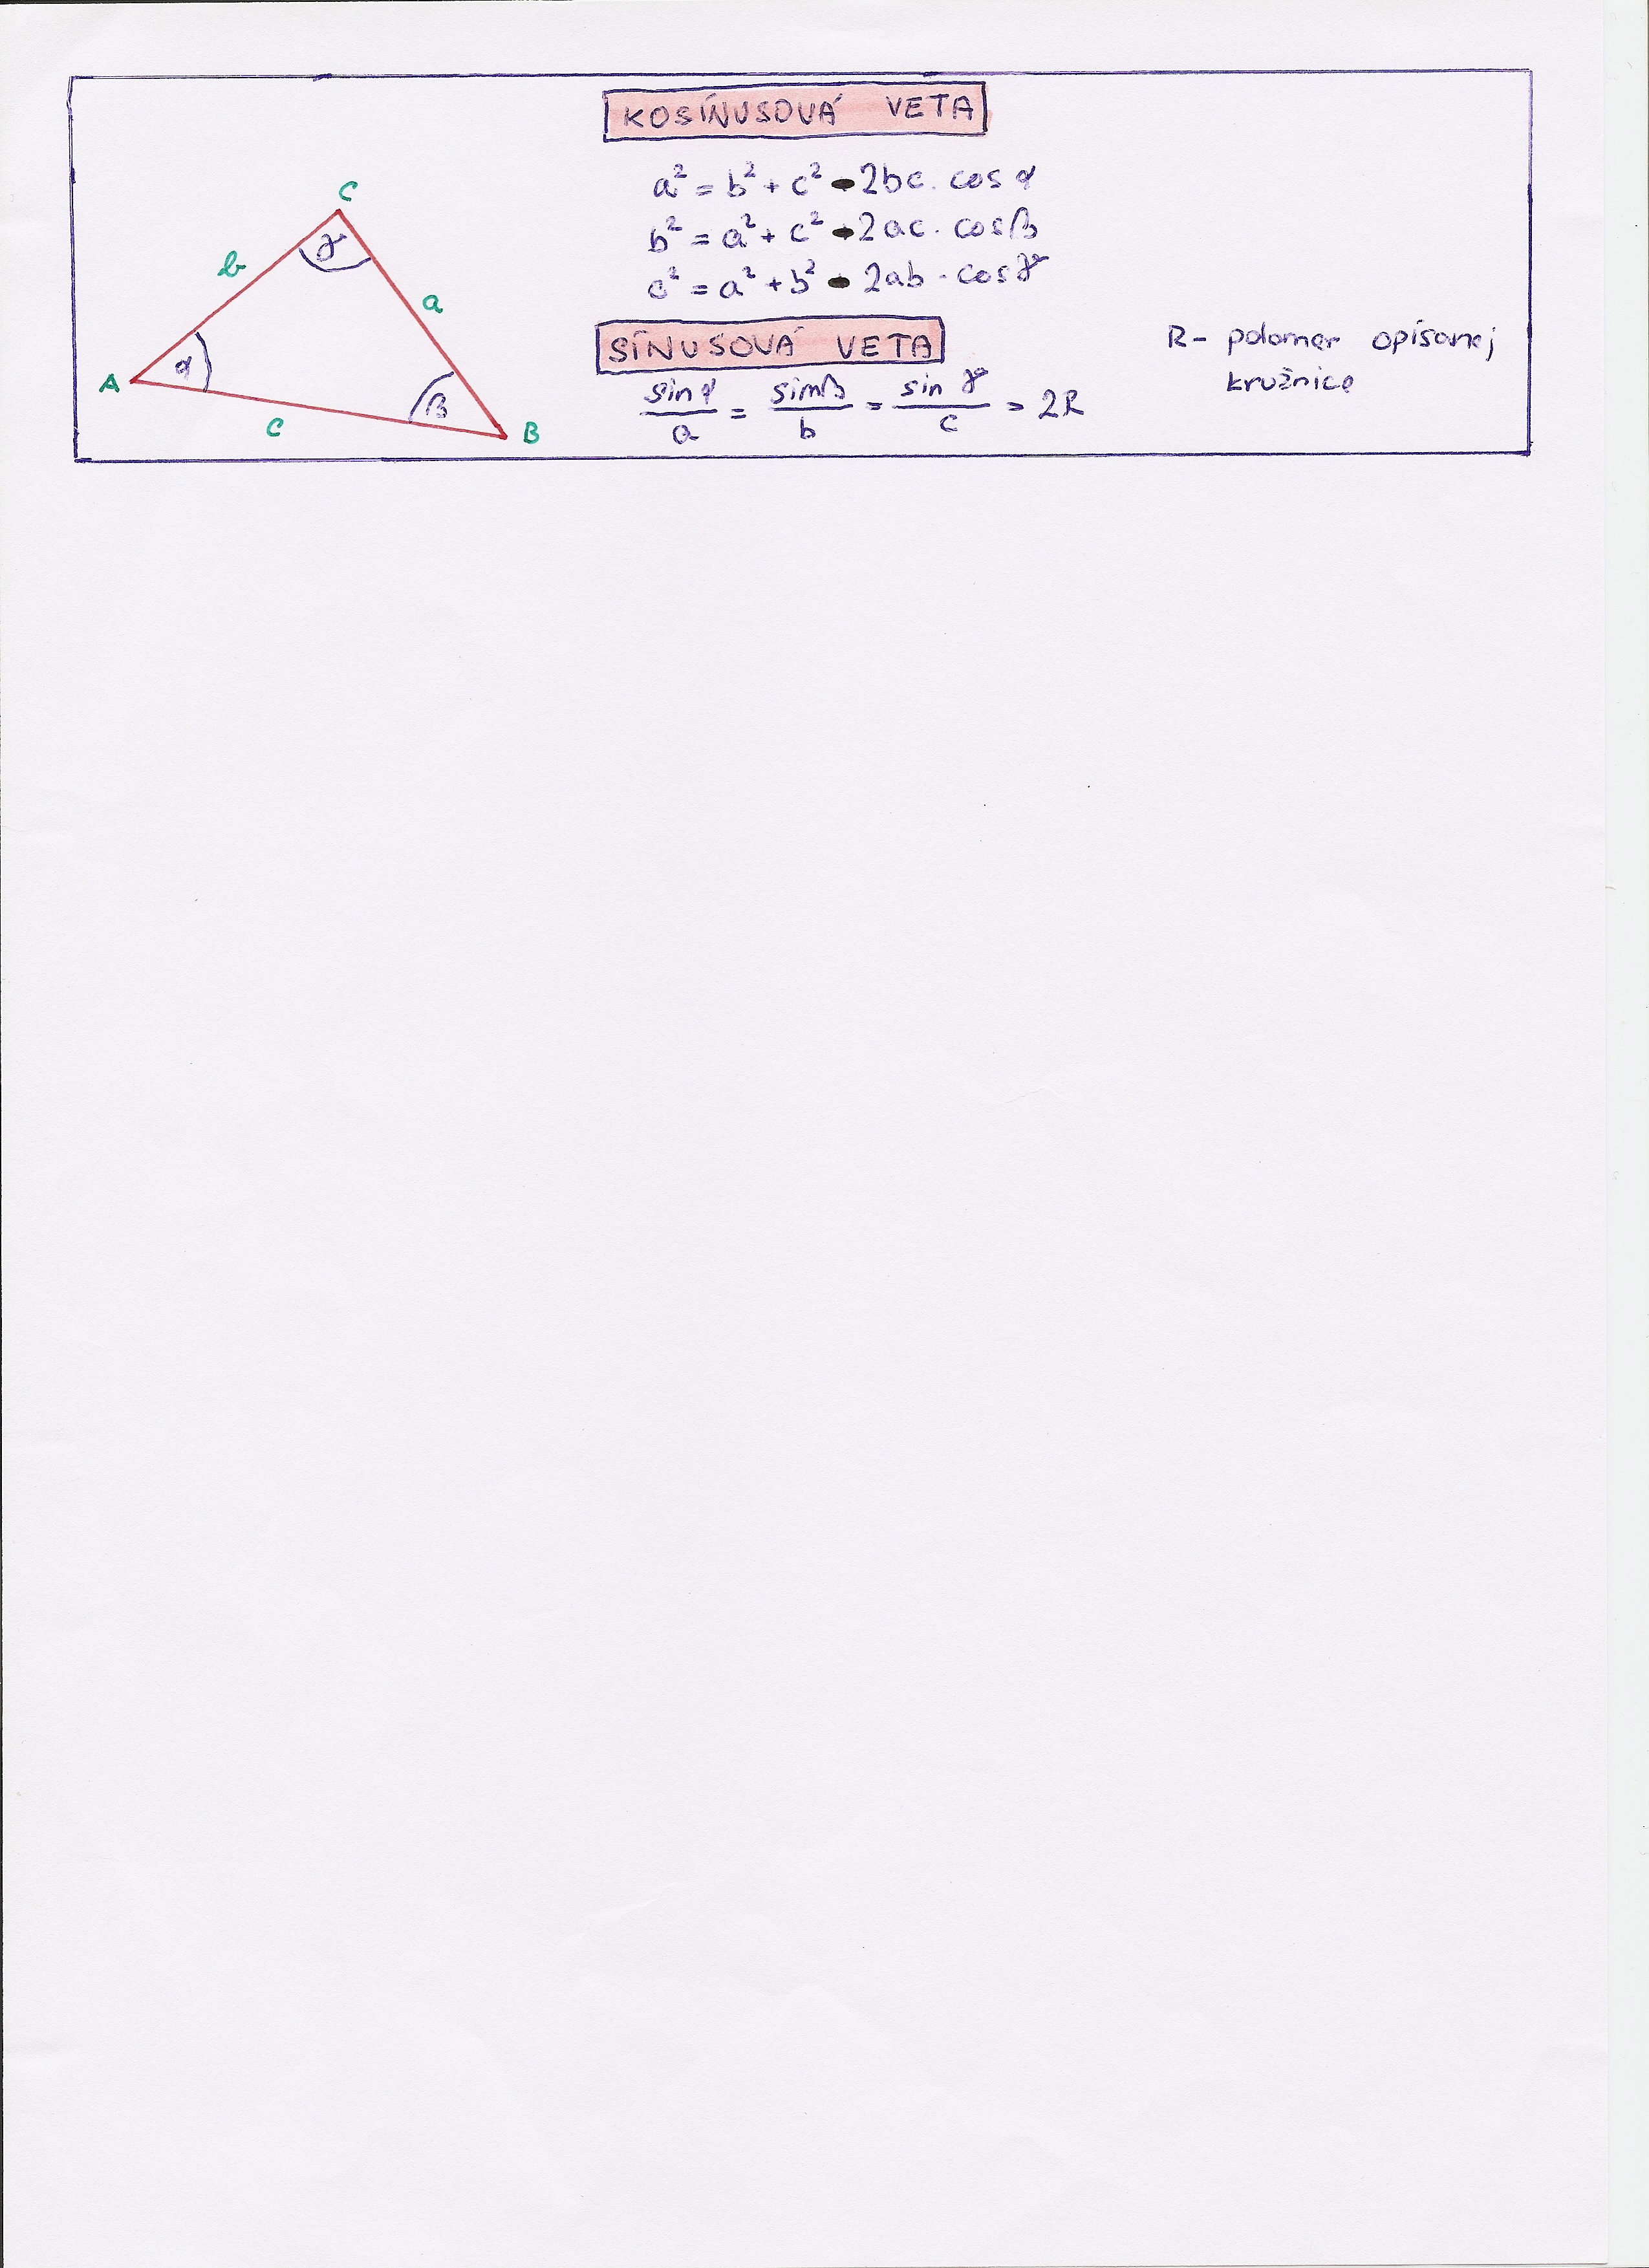 KOSÍNUSOVÁ VETA
a² = b² + c² - 2bc . cos α
b² = a² + c² - 2ac . cosβ
c² = a² + b² - 2ab . cosγ
C
γ
b
a
α
A
β
c
B
SÍNUSOVÁ VETA
sinα/a = sinβ/b = sin γ/c = 2R
R - polomer opísanej
kružnice